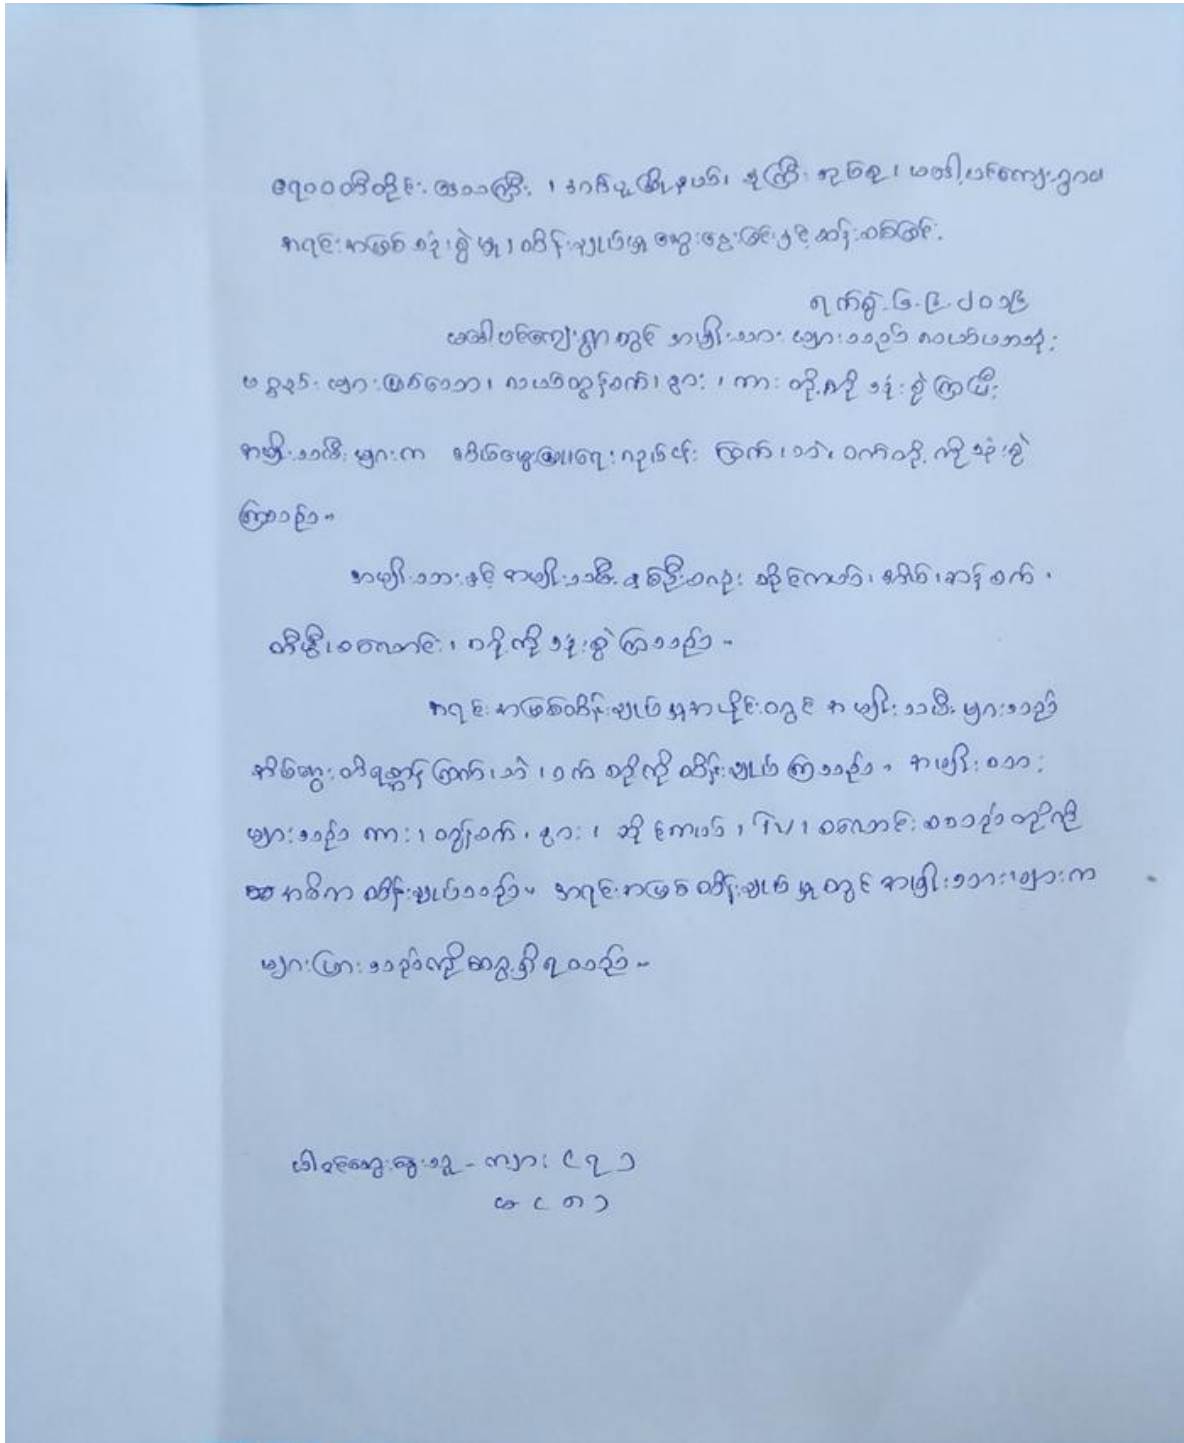 ဧရာဝတီတိုင်း ဒေသကြီး ၊ အင်ပူမြို့နယ်၊ ကြီး အုပ်စု ၊ မအိပင်ကျေးရွာ၏
အရင်းအမြစ် သုံးစွဲမှု၊ ထိန်းချုပ်မှု ဆွေးနွေးခြင်းနှင့် ဆန်းစစ်ခြင်း
ရက်စွဲ ၆.၉.၂၀၁၆
ကျေးရွာတွင် အမျိုးသားများသည် လယ်ယာသုံး
ပစ္စည်းများဖြစ်သော၊ လယ်ထွန်စက်၊ နွား ၊ ကား တို့ကို သုံးစွဲကြပြီး
အမျိုးသမီးများက မွေးမြူရေးလုပ်ငန်း ကြက်၊ ဘဲ၊ ဝက်တို့ကို သုံးစွဲ
ကြသည်။
အမျိုးသားနှင့် အမျိုးသမီး နှစ်ဦးစလုံး ဆိုင်ကယ်၊ အိမ်၊ ဆန်စက် ၊
တီဗွီ၊ စလောင်း ၊ တို့ကို သုံးစွဲကြသည်။
အရင်းအမြစ်ထိန်းချုပ်မှုအပိုင်းတွင် အမျိုးသမီးများသည်
အိမ်မွေးတိရစ္ဆာန် ကြက်၊ ဘဲ ၊ ဝက် တို့ကို ထိန်းချုပ်ကြသည်။ အမျိုးသား
များသည် ကား ၊ ထွန်စက် ၊ နွား ၊ ဆိုင်ကယ် ၊ TV ၊ စလောင်း စသည်တို့ကို
အဓိက ထိန်းချုပ်သည်။ အရင်းအမြစ်ထိန်းချုပ်မှုတွင် အမျိုးသားများက
များပြားသည်ကို တွေ့ရှိရသည်။
ပါဝင်ဆွေးနွေးသူ - ကျား ၎ရ၁
မ ၎ ၈၁